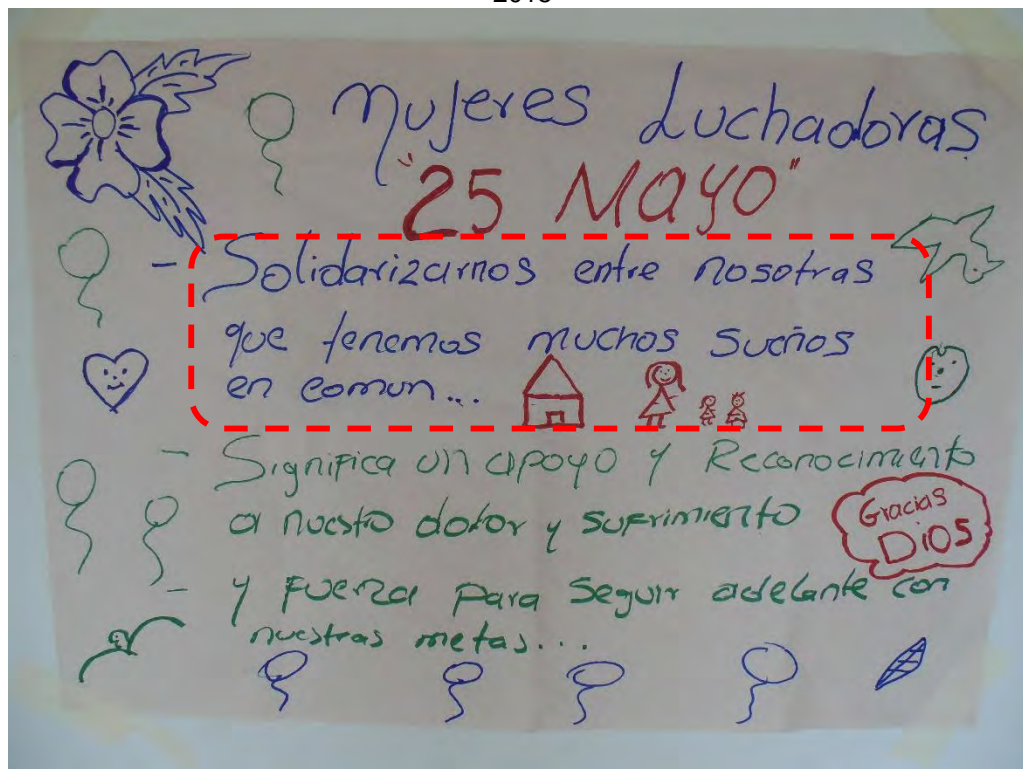 Mujeres Luchadoras
"25 MAYO"
- Solidarizarnos entre nosotras
que tenemos muchos sueños
en comun...
- Significa un apoyo y Reconocimiento
a nuestro dolor y sufrimiento
Gracias
DIOS
- y fuerza para seguir adelante con
nuestras metas...